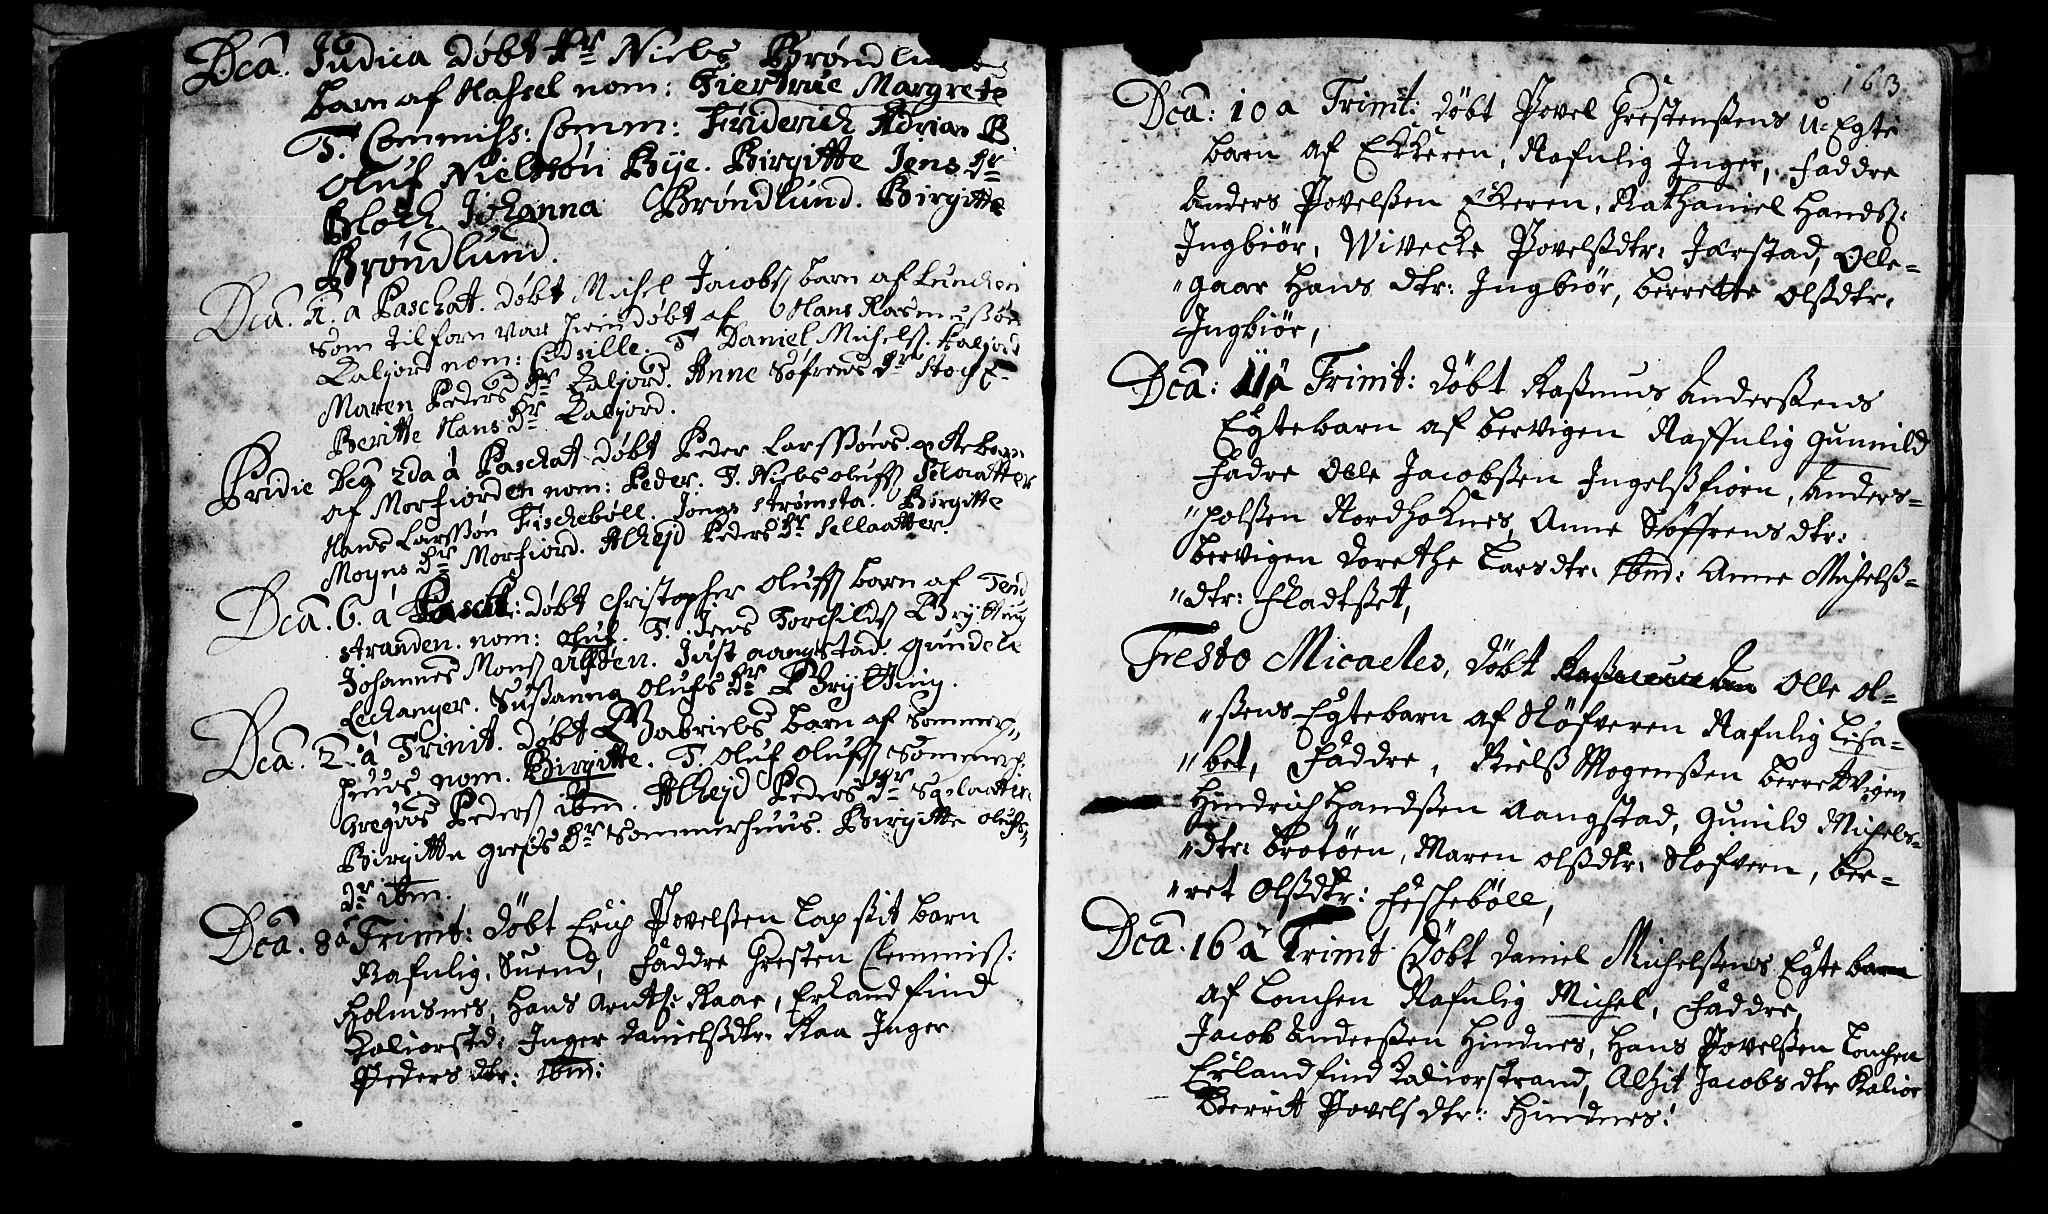 Dca. Judica døbt Hr Niels Brøndlunds
barn af Hassel nom: Giertrue Margrete
T. Commiss: Comm: Friderich Adrian B
Oluf Nielssøn Bye. Birgitte Jens Dr
Bloch Johanna Brøndlund. Birgitte
Brøndlund.
Dca. 1. a Paschat. døbt Michel Jacobs barn af Lunchen
som tilforn var hiemdøbt af Hans Rasmussøn
Kaljord nom: Sidsille. T. Daniel Michels. Kaljord
Maren Peders Dr Kaljord. Anne Søfrens Dr
Beritte Hans Dr Kaljord.
Pridie Dca 2da á Paschat døbt Peder Larssøns ægtebarn
af Morfiorden nom: Peder. T. Niels Olufs Selaatter
Hans Larssøn Fischebøll. Jons Strømsta. Birgitte
Moyns Dr Morfiord. Alhejd Peders Dr Sellaatter.
Dca. 6. á Pasch: døbt Christopher Olufs barn af Tend
stranden. nom: Oluf. T. Jens Torchilds Brytting
Johannes Mons Ulfsøen. Just aangstad. Gundele
Lechanger. Susanna Olufs Dr Brytting.
Dca. 2. á Trinit. døbt Gabriels barn af Sommer,,
huus. nom. Birgitte. T. Oluf Olufs Sommerh:
Gregus Peders ibm. Alhejd Peders Dr Selaatter
Birgitta Gregs Dr Sommerhuus. Birgitte Olufs,,
Dr ibm.
Dca. 8 á Trinit: døbt Erich Povelßen Lap sit barn
Nafnlig. Suend, Faddre Chresten Clemmiß:
Holmsnes, Hans Arnth: Raae, Erland find
Kaliorstd: Inger Danielßdtr. Raa Inger
Peders dtr: ibm:
163
Dca: 10 a Trinit: døbt Povel Chrestenßens U-Egte
barn af Ekkeren, Nafnlig Inger, Faddre
Anders Povelßen Ekeren, Nathaniel Handß:
Ingbiør, Wivecke Povelßdtr: Jarstad, Olle-
"gaar Hans dtr: Ingbiør, berrette Olßdtr:
Ingbiør,
Dca: 11 á Trinit: døbt Raßmus Anderßens
Egtebarn af bervigen Naffnlig Gunnild
Fadre Olle Jacobßen Ingelßfiorn, Anders-
"polßen Nordhoknes, Anne Søffrens dtr:
bervigen Dorethe Lars dtr: ibm: Anne Michelß-
"dtr: Fladtset,
Festo Micaeles, døbt Olle Ol-
"ßens Egtebarn af Kløfveren Nafnlig Lisa-
"bet, Faddre, Nielß Mogenßen berretvigen
Hindrich Handßen Aangstad, Gunild Michels-
"dtr: brotøen, Maren Olßdtr: Klofvern, ber-
"ret Olßdtr: Fischebøll,
Dca. 16 á Trinit døbt Daniel Michelßens Egte barn
af Lonchen Nafnlig Michel, Faddre,
Jacob Anderßen Hindnes, Hans Povelßen Lonchen
Erland find Kaliorstrand, Alhit Jacobs dtr Kalior
Berrit Povels dtr: Hindnes: